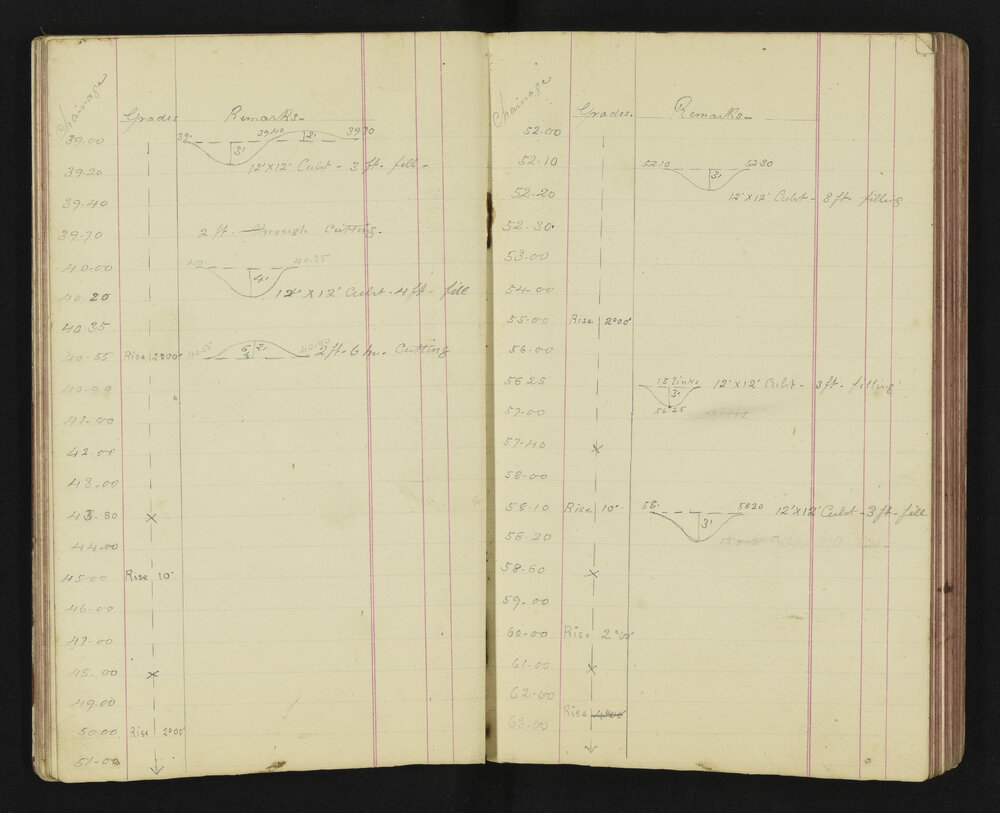 Chainage
Grades Remarks-
39.00
39. 39.40 2' 39.70
3'
39.20 12'X12' Culvt - 3 ft. fill -
39.40
39.70 2 ft. through Cutting.
40.00 40. 40.35
4'
40.20 12'X12' Culvt - 4 ft - fill
40.35
40.55 Rise 2°00' 40.55 2' 40.90 2 ft. 6 in. Cutting
40.90
41.00
42.00
43.00
43.80 X
44.00
45.00 Rise 10'
46.00
47.00
48.00 X
49.00
50.00 Rise 2°00'
51.00
Chainage
Grades. Remarks-
52.00
52.10 52.10 52.30
3'
52.20 12'X12' Culvt - 3 ft. filling
52.30
53.00
54.00
55.00 Rise 2°00'
56.00
56.25 15 links 12'X12' Culvt - 3 ft - filling
3'
57.00 56.25
57.40 X
58.00
58.10 Rise 10' 58. 58.20 12'X12' Culvt - 3 ft - fill
3'
58.20
58.60 X
59.00
60.00 Rise 2°00'
61.00 X
62.00
Rise 4°00'
63.00